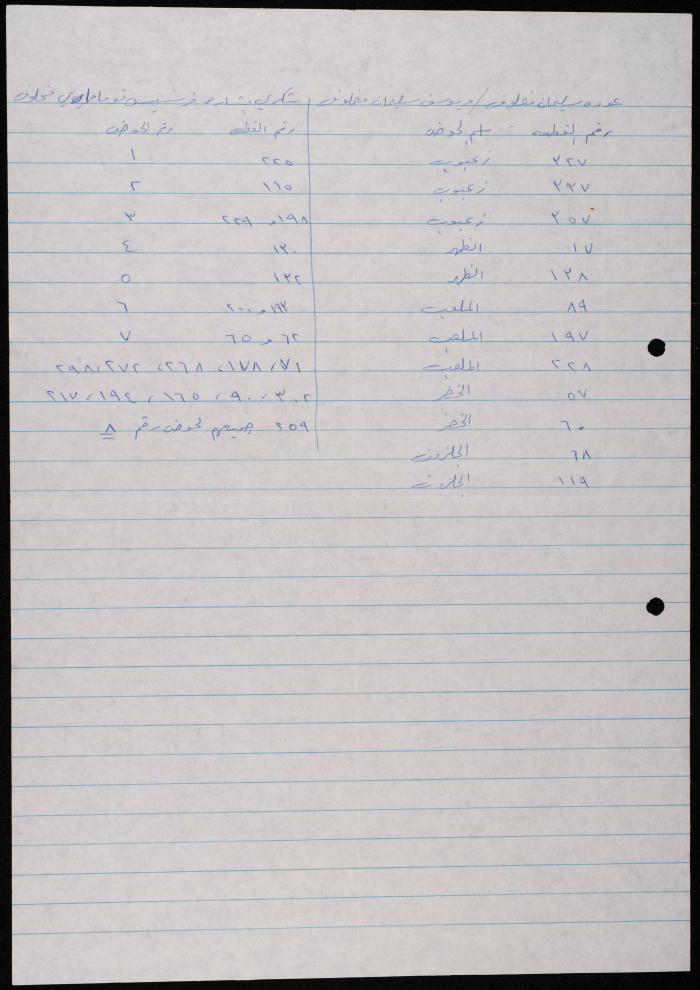 عوده سليمان مخلوف / ويوسف سليمان مخلوف
رقم القطعه اسم الحوض
٣٢٧ زعبوب
٣٣٧ زعبوب
٣٥٧ زعبوب
١٧ الظهر
١٣٨ الظهر
٨٩ الملعب
١٩٧ الملعب
٢٢٨ الملعب
٥٧ الخضر
٦٠ الخضر
٦٨ الحلزون
١١٩ الحلزون
شكري بشاره فرنسيس توما مخلوف
رقم القطعه رقم الحوض
٢٢٥ ١
١١٥ ٢
١٩٨ و ٢٢٩ ٣
١٣٠ ٤
١٣٢ ٥
١٩٣ و ٢٠٠ ٦
٦٢ و ٦٥ ٧
٧١، ١٧٨، ٢٦٨، ٢٧٢، ٢٩٨
٣٠٢، ٩٠، ١٦٥، ١٩٤، ٢١٧
٢٥٩ جميعهم لحوض رقم ٨